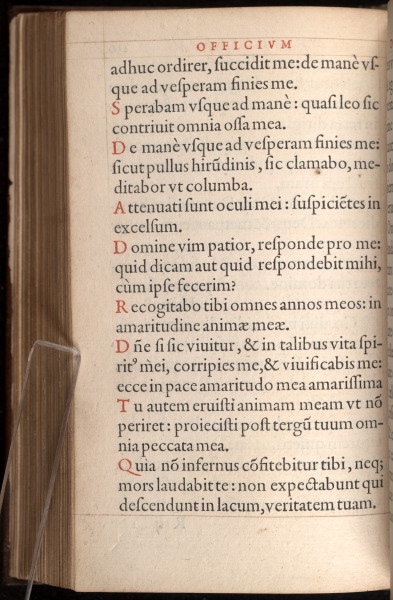 OFFICIVM
adhuc ordirer, ſuccidit me: de manè vſ-
que ad veſperam finies me.
Sperabam vſque ad manè: quaſi leo ſic
contriuit omnia oſſa mea.
De manè vſque ad veſperam finies me:
ſicut pullus hirũdinis, ſic clamabo, me-
ditabor vt columba.
Attenuati ſunt oculi mei: ſuſpiciẽtes in
excelſum.
Domine vim patior, reſponde pro me:
quid dicam aut quid reſpondebit mihi,
cùm ipſe fecerim?
Recogitabo tibi omnes annos meos: in
amaritudine animæ meæ.
Dñe ſi ſic viuitur, & in talibus vita ſpi-
ritꝰ mei, corripies me, & viuificabis me:
ecce in pace amaritudo mea amariſſima
Tu autem eruiſti animam meam vt nõ
periret: proieciſti poſt tergũ tuum om-
nia peccata mea.
Quia nõ infernus cõfitebitur tibi, neqꝫ
mors laudabit te: non expectabunt qui
deſcendunt in lacum, veritatem tuam.